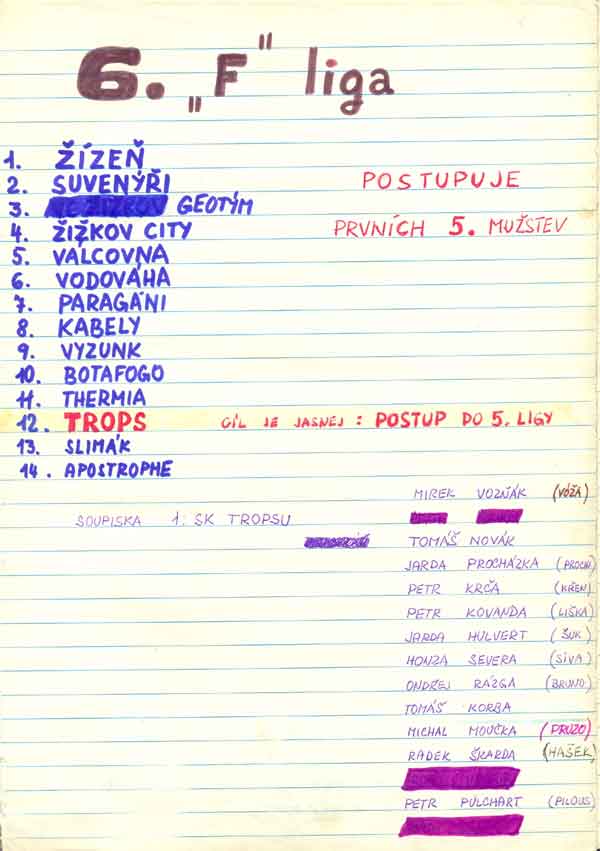 6. „F" liga
1. ŽÍZEŇ
2. SUVENÝŘI
3. GEOTÝM
4. ŽIŽKOV CITY
5. VÁLCOVNA
6. VODOVÁHA
7. PARAGÁNI
8. KABELY
9. VYZUNK
10. BOTAFOGO
11. THERMIA
12. TROPS
13. SLIMÁK
14. APOSTROPHE
POSTUPUJE
PRVNÍCH 5. MUŽSTEV
CÍL JE JASNEJ : POSTUP DO 5. LIGY
SOUPISKA 1. SK TROPSU
MIREK VOZŇÁK (VÓŽA)
TOMÁŠ NOVÁK
JARDA PROCHÁZKA (PROCH)
PETR KRČA (KŘEN)
PETR KOVANDA (LIŠKA)
JARDA HULVERT (ŠUK)
HONZA SEVERA (SÍVA)
ONDŘEJ RÁZGA (BRUNO)
TOMÁŠ KORBA
MICHAL MOUČKA (PRUZO)
RADEK ŠKARDA (HAŠEK)
PETR PULCHART (PILOUS)